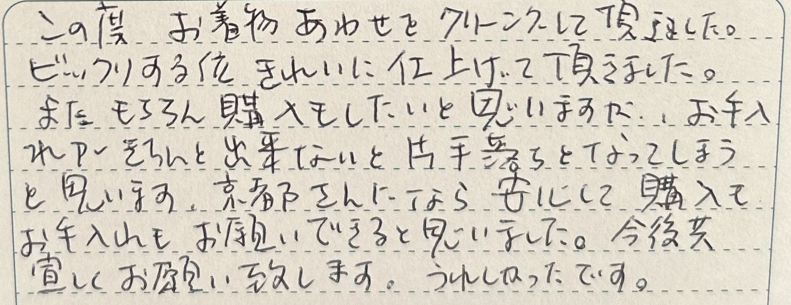 この度 お着物 あわせを クリーニングして頂きました。
ビックリする位 きれいに 仕上げて頂きました。
また もちろん 購入もしたいと思いますが、お手入
れが きちんと出来ないと片手落ちとなってしまう
と思います。京都さんになら 安心して 購入も
お手入れも お願いできると思いました。今後共
宜しくお願い致します。うれしかったです。